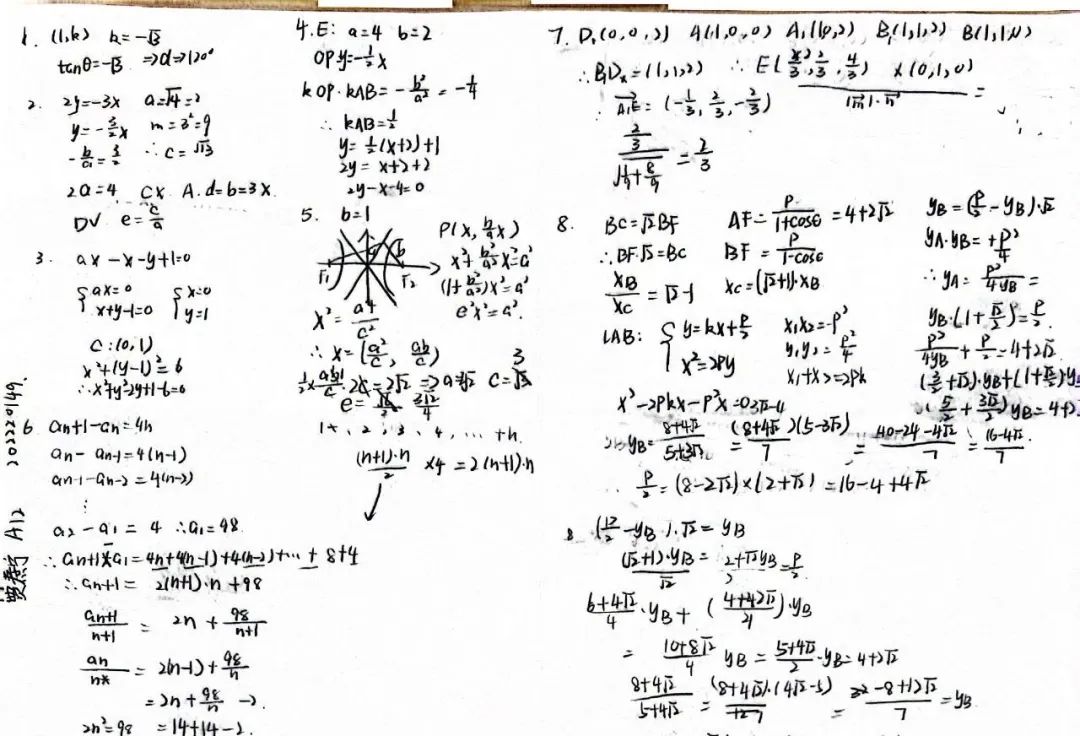 1. (1,k) k=-√3
tanθ=-√3 ⇒α⇒120°
2. 2y=-3x a=√4=2
y=-3/2x m=3²=9
-b/a=3/2 ∴c=√13
2a=4 C× A.d=b=3×.
D√ e=c/a
3. ax-x-y+1=0
{ax=0 {x=0
x+y-1=0 y=1
C:(0,1)
x²+(y-1)²=6
∴x²+y²-2y+1-6=0
6 an+1-an=4n
an-an-1=4(n-1)
an-1-an-2=4(n-2)
⋮
a2-a1=4 ∴a1=98
∴an+1-a1=4n+4(n-1)+4(n-2)+…+8+4
∴an+1=2(n+1)·n+98
an+1/n+1=2n+98/n+1
an/n=2(n-1)+98/n
=2n+98/n-2.
2n²=98 =14+14-2.
A12 202220149.
4.E: a=4 b=2
OP y=-1/2x
kOP·kAB=-b²/a²=-1/4
∴kAB=1/2
y=1/2(x+2)+1
2y=x+2+2
2y-x-4=0
5. b=1
F1 F2
P(x,b/ax)
x²+b²/a²x²=a²
(1+b²/a²)x²=a²
e²x²=a².
x²=a⁴/c²
∴x=(a²/c,ab/c)
e= 3√2/4
1+,2,3,4,…+n.
(n+1)·n/2 ×4=2(n+1)·n
7. D1(0,0,2) A(1,0,0) A1(1,0,2) B1(1,1,2) B(1,1,0)
∴E(2/3,2/3,4/3) x(0,1,0)
A1E=(-1/3,2/3,-2/3) |m|·n =
=2/3
8. BC=√2BF AF=p/1+cosθ=4+2√2 yB=(p/2-yB)·√2
∴BF·√2=BC BF=p/1-cosθ yA·yB=+p²/4
xB/xC=√2-1 xC=(√2+1)·xB ∴yA=p²/4yB=
LAB: {y=kx+p/2 x1x2=-p² yB·(1+√2/2)=p/2.
x²=2py y1y2=p²/4 p²/4yB+p/2=4+2√2
x1+x2=2pk
x²-2pkx-p²=0
yB=8+4√2/5+3√2 (8+4√2)(5-3√2)/7 =40-24-4√2/7=16-4√2/7
p/2=(8-2√2)×(2+√2)=16-4+4√2
8 (p/2-yB)·√2=yB
(√2+1)·yB/√2=2+√2yB/2=p/2
6+4√2/4·yB+(4+4√2/4)·yB
=10+8√2/4 yB=5+4√2/2·yB=4+2√2
8+4√2/5+4√2=(8+4√2)·(4√2-5)/+7=32-8+12√2/7=yB